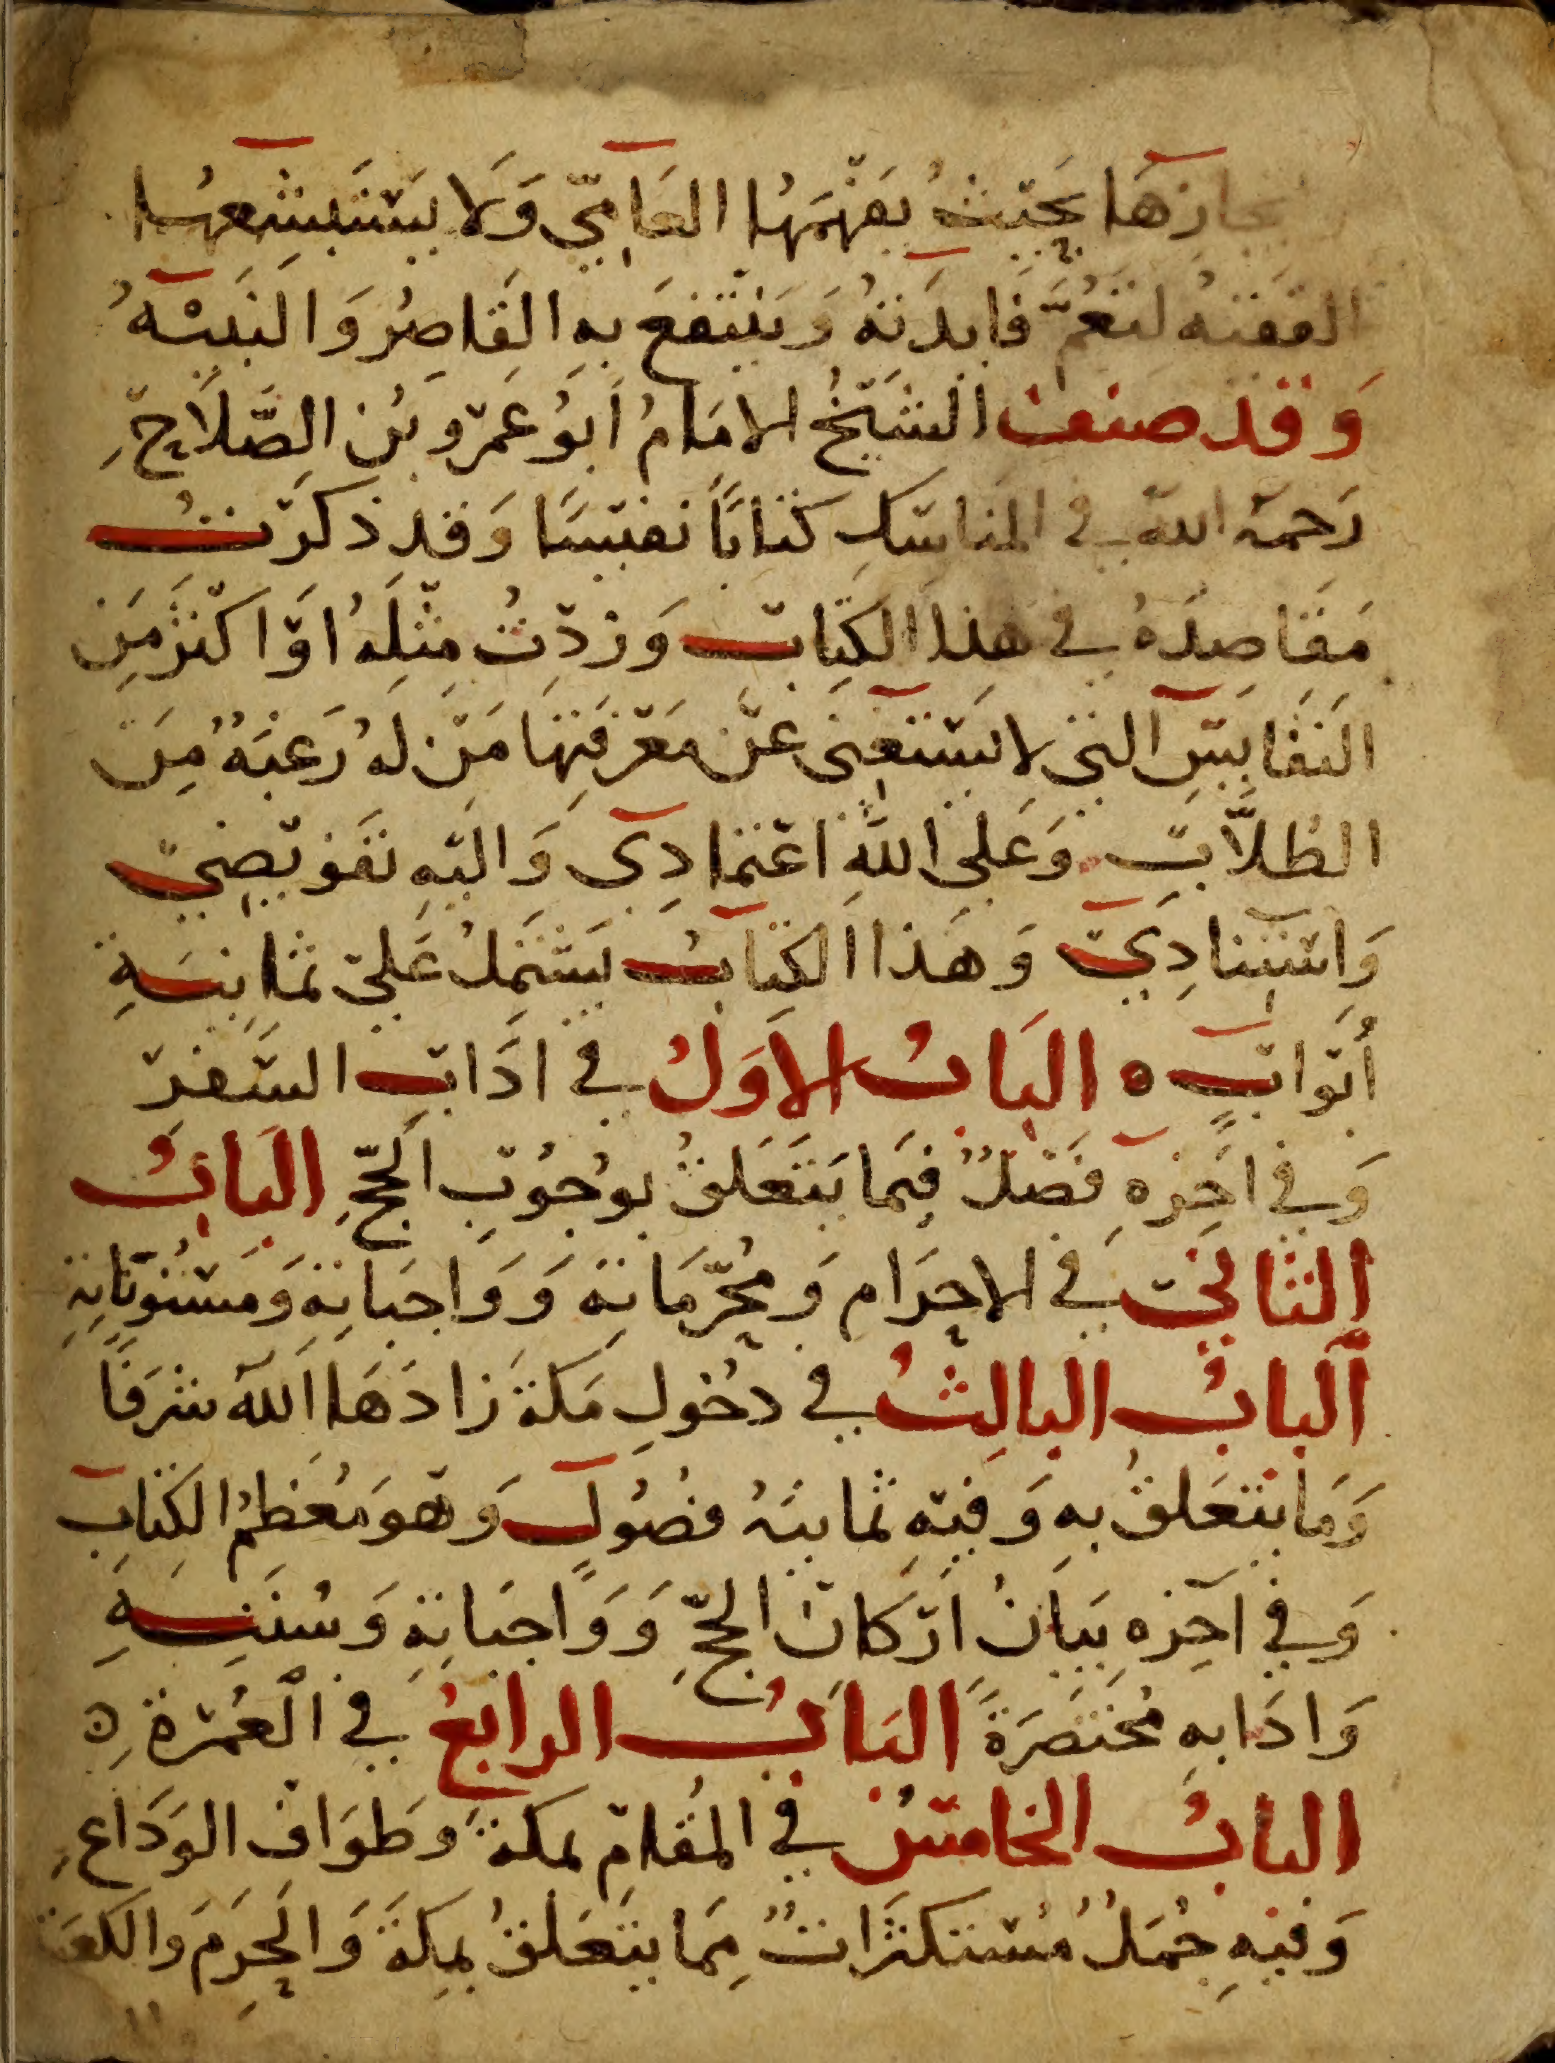 بحيث يفهمها العامي ولا يستبشعها
الفقيه لتعم فايدته وينتفع به القاصر والنبيه
وقد صنف الشيخ الامام ابو عمرو بن الصلاح
رحمه الله في المناسك كتابا نفيسا وقد ذكرت
مقاصده في هذا الكتاب وزدت مثله او اكثر من
النفايس التي لا يستغنى عن معرفتها من له رغبة من
الطلاب وعلى الله اعتمادي واليه تفويضي
واستنادي وهذا الكتاب يشتمل على ثمانية
أبواب ه الباب الاول في اداب السفر
وفي اخره فصل فيما يتعلق بوجوب الحج الباب
الثاني في الاحرام ومحرماته وواجباته ومسنوناته
الباب الثالث في دخول مكة زادها الله شرفا
وما يتعلق به وفيه ثمانية فصول وهو معظم الكتاب
وفي آخره بيان اركان الحج وواجباته وسننه
وادابه مختصرة الباب الرابع في العمرة ه
الباب الخامس في المقام بمكة وطواف الوداع
وفيه جمل مستكثرات مما يتعلق بمكة والحرم والكعبة